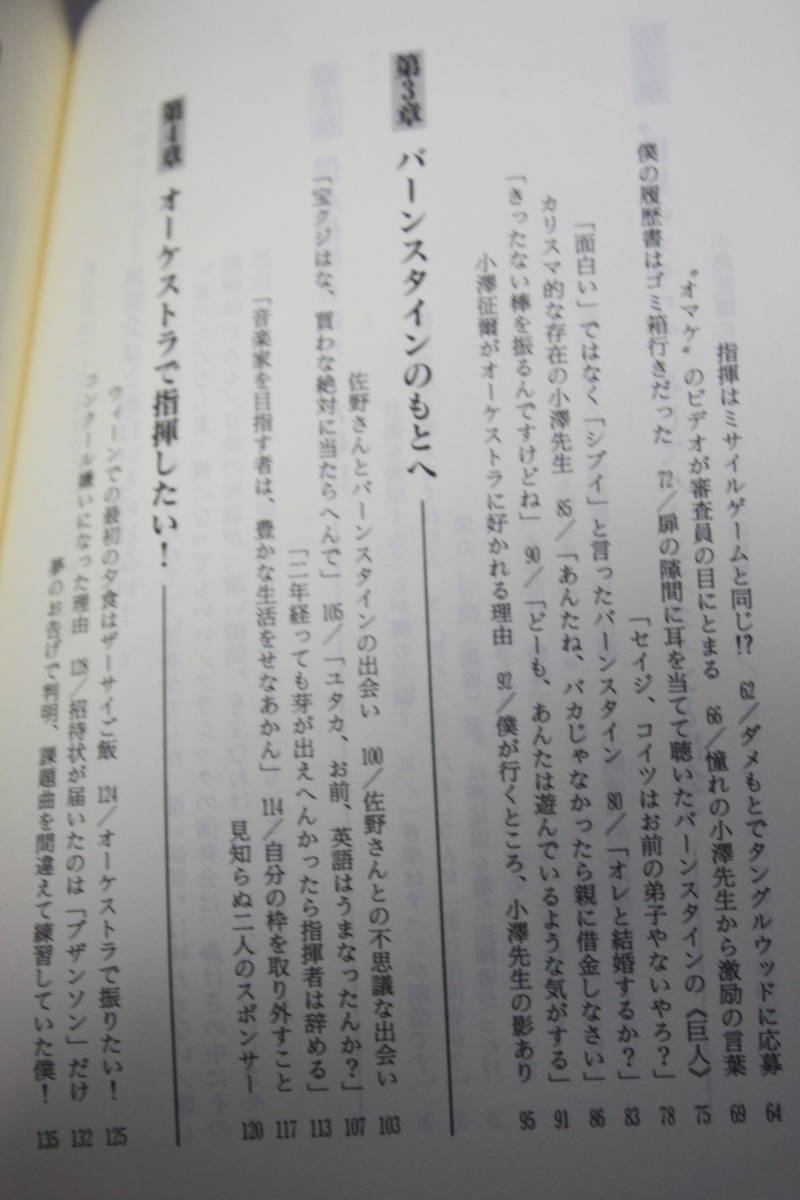 指揮はミサイルゲームと同じ!? 62／ダメもとでタングルウッドに応募 64
〝オマケ〟のビデオが審査員の目にとまる 66／憧れの小澤先生から激励の言葉 69
僕の履歴書はゴミ箱行きだった 72／扉の隙間に耳を当てて聴いたバーンスタインの《巨人》 75
「セイジ、コイツはお前の弟子やないやろ？」 78
「面白い」ではなく「シブイ」と言ったバーンスタイン 80／「オレと結婚するか？」 83
カリスマ的な存在の小澤先生 85／「あんたね、バカじゃなかったら親に借金しなさい」 86
「きったない棒を振るんですけどね」 90／「どーも、あんたは遊んでいるような気がする」 91
小澤征爾がオーケストラに好かれる理由 92／僕が行くところ、小澤先生の影あり 95
第3章 バーンスタインのもとへ
佐野さんとバーンスタインの出会い 100／佐野さんとの不思議な出会い 103
「宝クジはな、買わな絶対に当たらへんで」 105／「ユタカ、お前、英語はうまなったんか？」 107
「二年経っても芽が出えへんかったら指揮者は辞める」 113
「音楽家を目指す者は、豊かな生活をせなあかん」 114／自分の枠を取り外すこと 117
見知らぬ二人のスポンサー 120
第4章 オーケストラで指揮したい！
ウィーンでの最初の夕食はザーサイご飯 124／オーケストラで振りたい！ 125
コンクール嫌いになった理由 128／招待状が届いたのは「ブザンソン」だけ 132
夢のお告げで判明、課題曲を間違えて練習していた僕！ 135